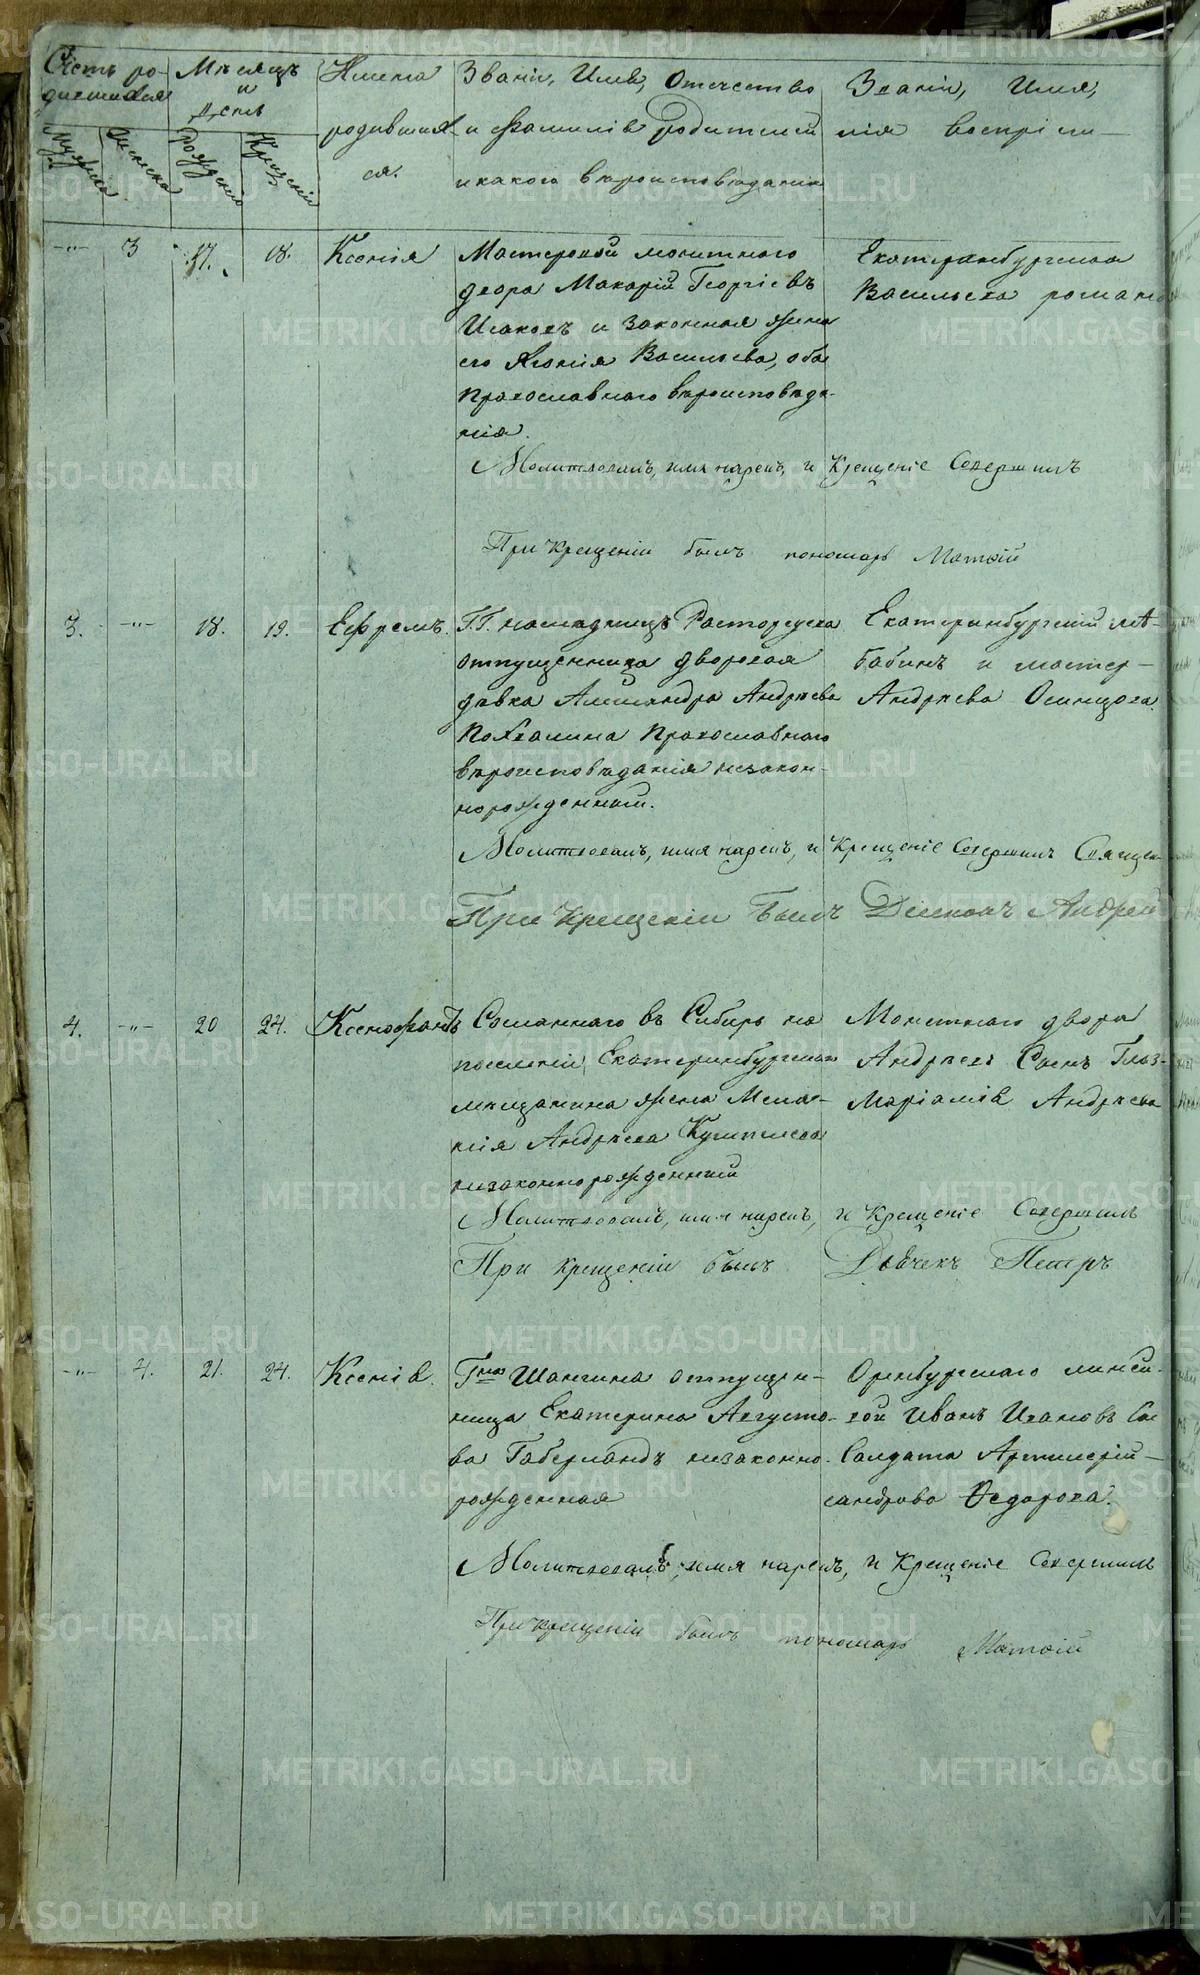 Счетъ ро-
дившихся
Мѣсяцъ
и
День
Мужеска
Женска
Рожденія
Крещенія
Имена
родивших
ся.
Званіе, Имя, Отчество
и Фамилія Родителей
и какого вѣроисповѣданія
Званіе, Имя,
лія воспріем—
—"— 3 17. 18. Ксенія
Мастеровой монетнаго
двора Макарій Георгіевъ
Исаковъ и законная жена
его Агонія Васильева, оба
Православнаго вѣроисповѣда-
нія.
Екатеринбургская
Васильева роман
Молитвовалъ, имя нарекъ, и Крещеніе Совершилъ
При крещеніи былъ пономарь Матѳій
3. —"— 18. 19. Ефремъ.
Г.Г. наслѣдницъ Расторгуева
отпущенница дворовая
дѣвка Александра Андреева
Похвалина Православнаго
вѣроисповѣданія незакон-
норожденный.
Екатеринбургскій мѣ-
бабинъ и мастер-
Андреева Осинцова.
Молитвовалъ, имя нарекъ, и Крещеніе Совершилъ Священ
При крещеніи былъ Діаконъ Андрей
4. —"— 20 24. Ксенофонтъ
Сосланнаго въ Сибирь на
поселеніе Екатеринбургскаго
мещанина жена Мела-
нія Андреева
незаконнорожденный
Монетнаго двора
Андреевъ Сынъ Глаз-
Маріамія Андреева
Молитвовалъ, имя нарекъ, и Крещеніе Совершилъ
При крещеніи былъ Дьячекъ Петръ
—"— 4. 21. 24. Ксенія.
Гна Шангина отпущен-
ница Екатерина Августо-
ва Габерландъ незаконно-
рожденная
Оренбургскаго линей-
вой Иванъ Ивановъ Са
Солдата Артилерій—
сандрова Ѳедорова.
Молитвовалъ, имя нарекъ, и Крещеніе Совершилъ
При крещеніи былъ пономарь Матѳій
METRIKI.GASO-URAL.RU